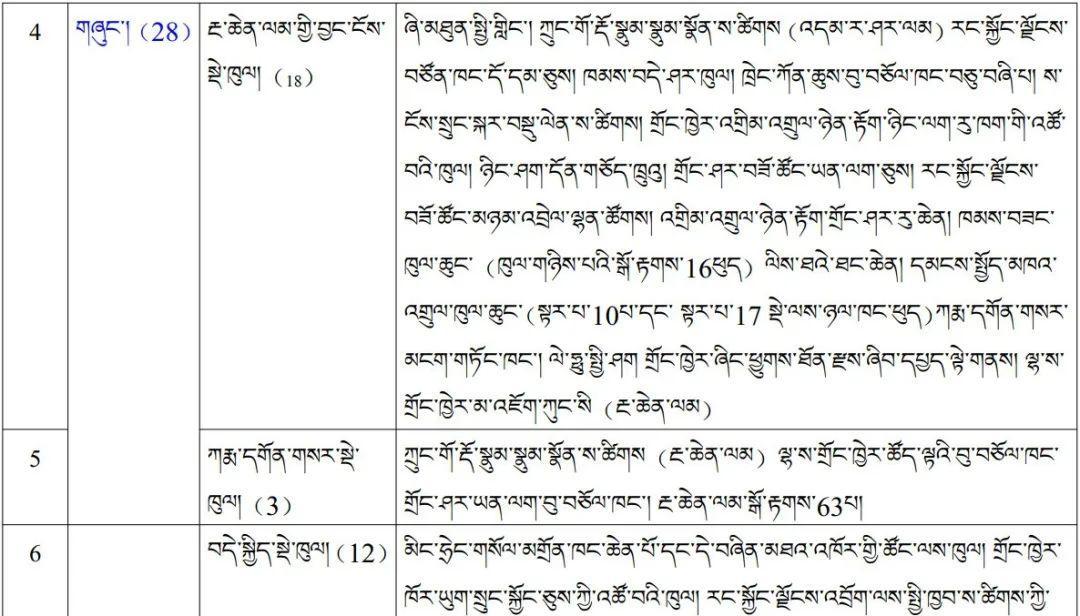 4
གཞུང་། (28)
རྔ་ཆེན་ལམ་གྱི་བྱང་ངོས་
སྡེ་ཁུལ། (18)
ཞི་མཐུན་སྤྱི་གླིང་། ཀྲུང་གོ་རྡོ་སྣུམ་སྣུམ་སྣོན་ས་ཚིགས (འདམ་ར་ཤར་ལམ) རང་སྐྱོང་ལྗོངས་
བཙོན་ཁང་དོ་དམ་ཅུས། ཁམས་བདེ་ཤར་ཁུལ། ཁྲེང་ཀོན་ཆུས་བུ་བཅོལ་ཁང་བཅུ་བཞི་པ། ས་
ངོས་སྲུང་སྐར་བསྡུ་ལེན་ས་ཚིགས། གྲོང་ཁྱེར་འགྲིམ་འགྲུལ་ཉེན་རྟོག་ཉིང་ལག་རུ་ཁག་གི་འཚོ་
བའི་ཁུལ། ཉིང་ཤག་དོན་གཅོད་ཁྲུའུ། གྲོང་ཤར་བཟོ་ཚོང་ཡན་ལག་ཅུས། རང་སྐྱོང་ལྗོངས་
བཟོ་ཚོང་མཉམ་འབྲེལ་ལྷན་ཚོགས། འགྲིམ་འགྲུལ་ཉེན་རྟོག་གྲོང་ཤར་རུ་ཆེན། ཁམས་བཟང་
ཁུལ་ཆུང་ (ཁུལ་གཉིས་པའི་སྒོ་རྟགས་16ཕུད) ལིས་ཐའེ་ཐང་ཆེན། དམངས་སྤྱོད་མཁའ་
འགྲུལ་ཁུལ་ཆུང་(སྟར་པ་10པ་དང་ སྟར་པ་17 སྡེ་ལས་ཉལ་ཁང་ཕུད)ཀརྨ་དགོན་གསར་
མངག་གཏོང་ཁང་། ལེ་ཧྥུ་སྤྱི་ཤག གྲོང་ཁྱེར་ཞིང་ཕྱུགས་ཐོན་རྫས་ཞིབ་དཔྱད་ལྟེ་གནས། ལྷ་ས་
གྲོང་ཁྱེར་མ་འཇོག་ཀུང་སི (རྔ་ཆེན་ལམ)
5
ཀརྨ་དགོན་གསར་སྡེ་
ཁུལ། (3)
ཀྲུང་གོ་རྡོ་སྣུམ་སྣུམ་སྣོན་ས་ཚིགས (རྔ་ཆེན་ལམ) ལྷ་ས་གྲོང་ཁྱེར་ཚོད་ལྟའི་བུ་བཅོལ་ཁང་
གྲོང་ཤར་ཡན་ལག་བུ་བཅོལ་ཁང་། རྔ་ཆེན་ལམ་སྒོ་རྟགས་63པ།
6
བདེ་སྐྱིད་སྡེ་ཁུལ། (12)
མིང་ཧྲེང་གསོལ་མགྲོན་ཁང་ཆེན་པོ་དང་དེ་བཞིན་མཐའ་འཁོར་གྱི་ཚོང་ལས་ཁུལ། གྲོང་ཁྱེར་
ཁོར་ཡུག་སྲུང་སྐྱོང་ཅུས་ཀྱི་འཚོ་བའི་ཁུལ། རང་སྐྱོང་ལྗོངས་འབྲོག་ལས་སྤྱི་ཁྱབ་ས་ཚིགས་ཀྱི་